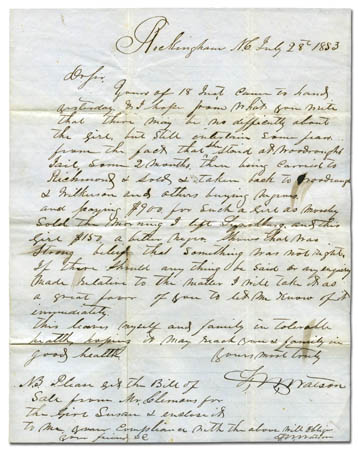 Rockingham NC July 28th 1853
Dr Sir
Yours of 18 Inst Came to hand
yesterday & I hope from what you write
that there may be no difficulty about
the girl, but still entertain some fears
from the fact that she staid at Woodroughs
Jail some 2 months, then being carried to
Richmond & sold & taken back to
& Wilkinson and others buying Negroes
and paying $900 for such a girl as
Sold the morning I left Lynchburg and this
Girl $150 a better Negro shows that was
Strong belief that something was not right,
If there should any thing be said or any inquiry
made relative to the matter I will take it as
a great favor of you to let me know of it
immediately
this leaves myself and family in tolerable
health hoping it may reach you & family in
good health yours most truly
Watson
NB Please get the Bill of
Sale from Mr Clemons for
the Girl Susan & enclose it
to me your Compliance with the above will oblige
your friend &c Watson